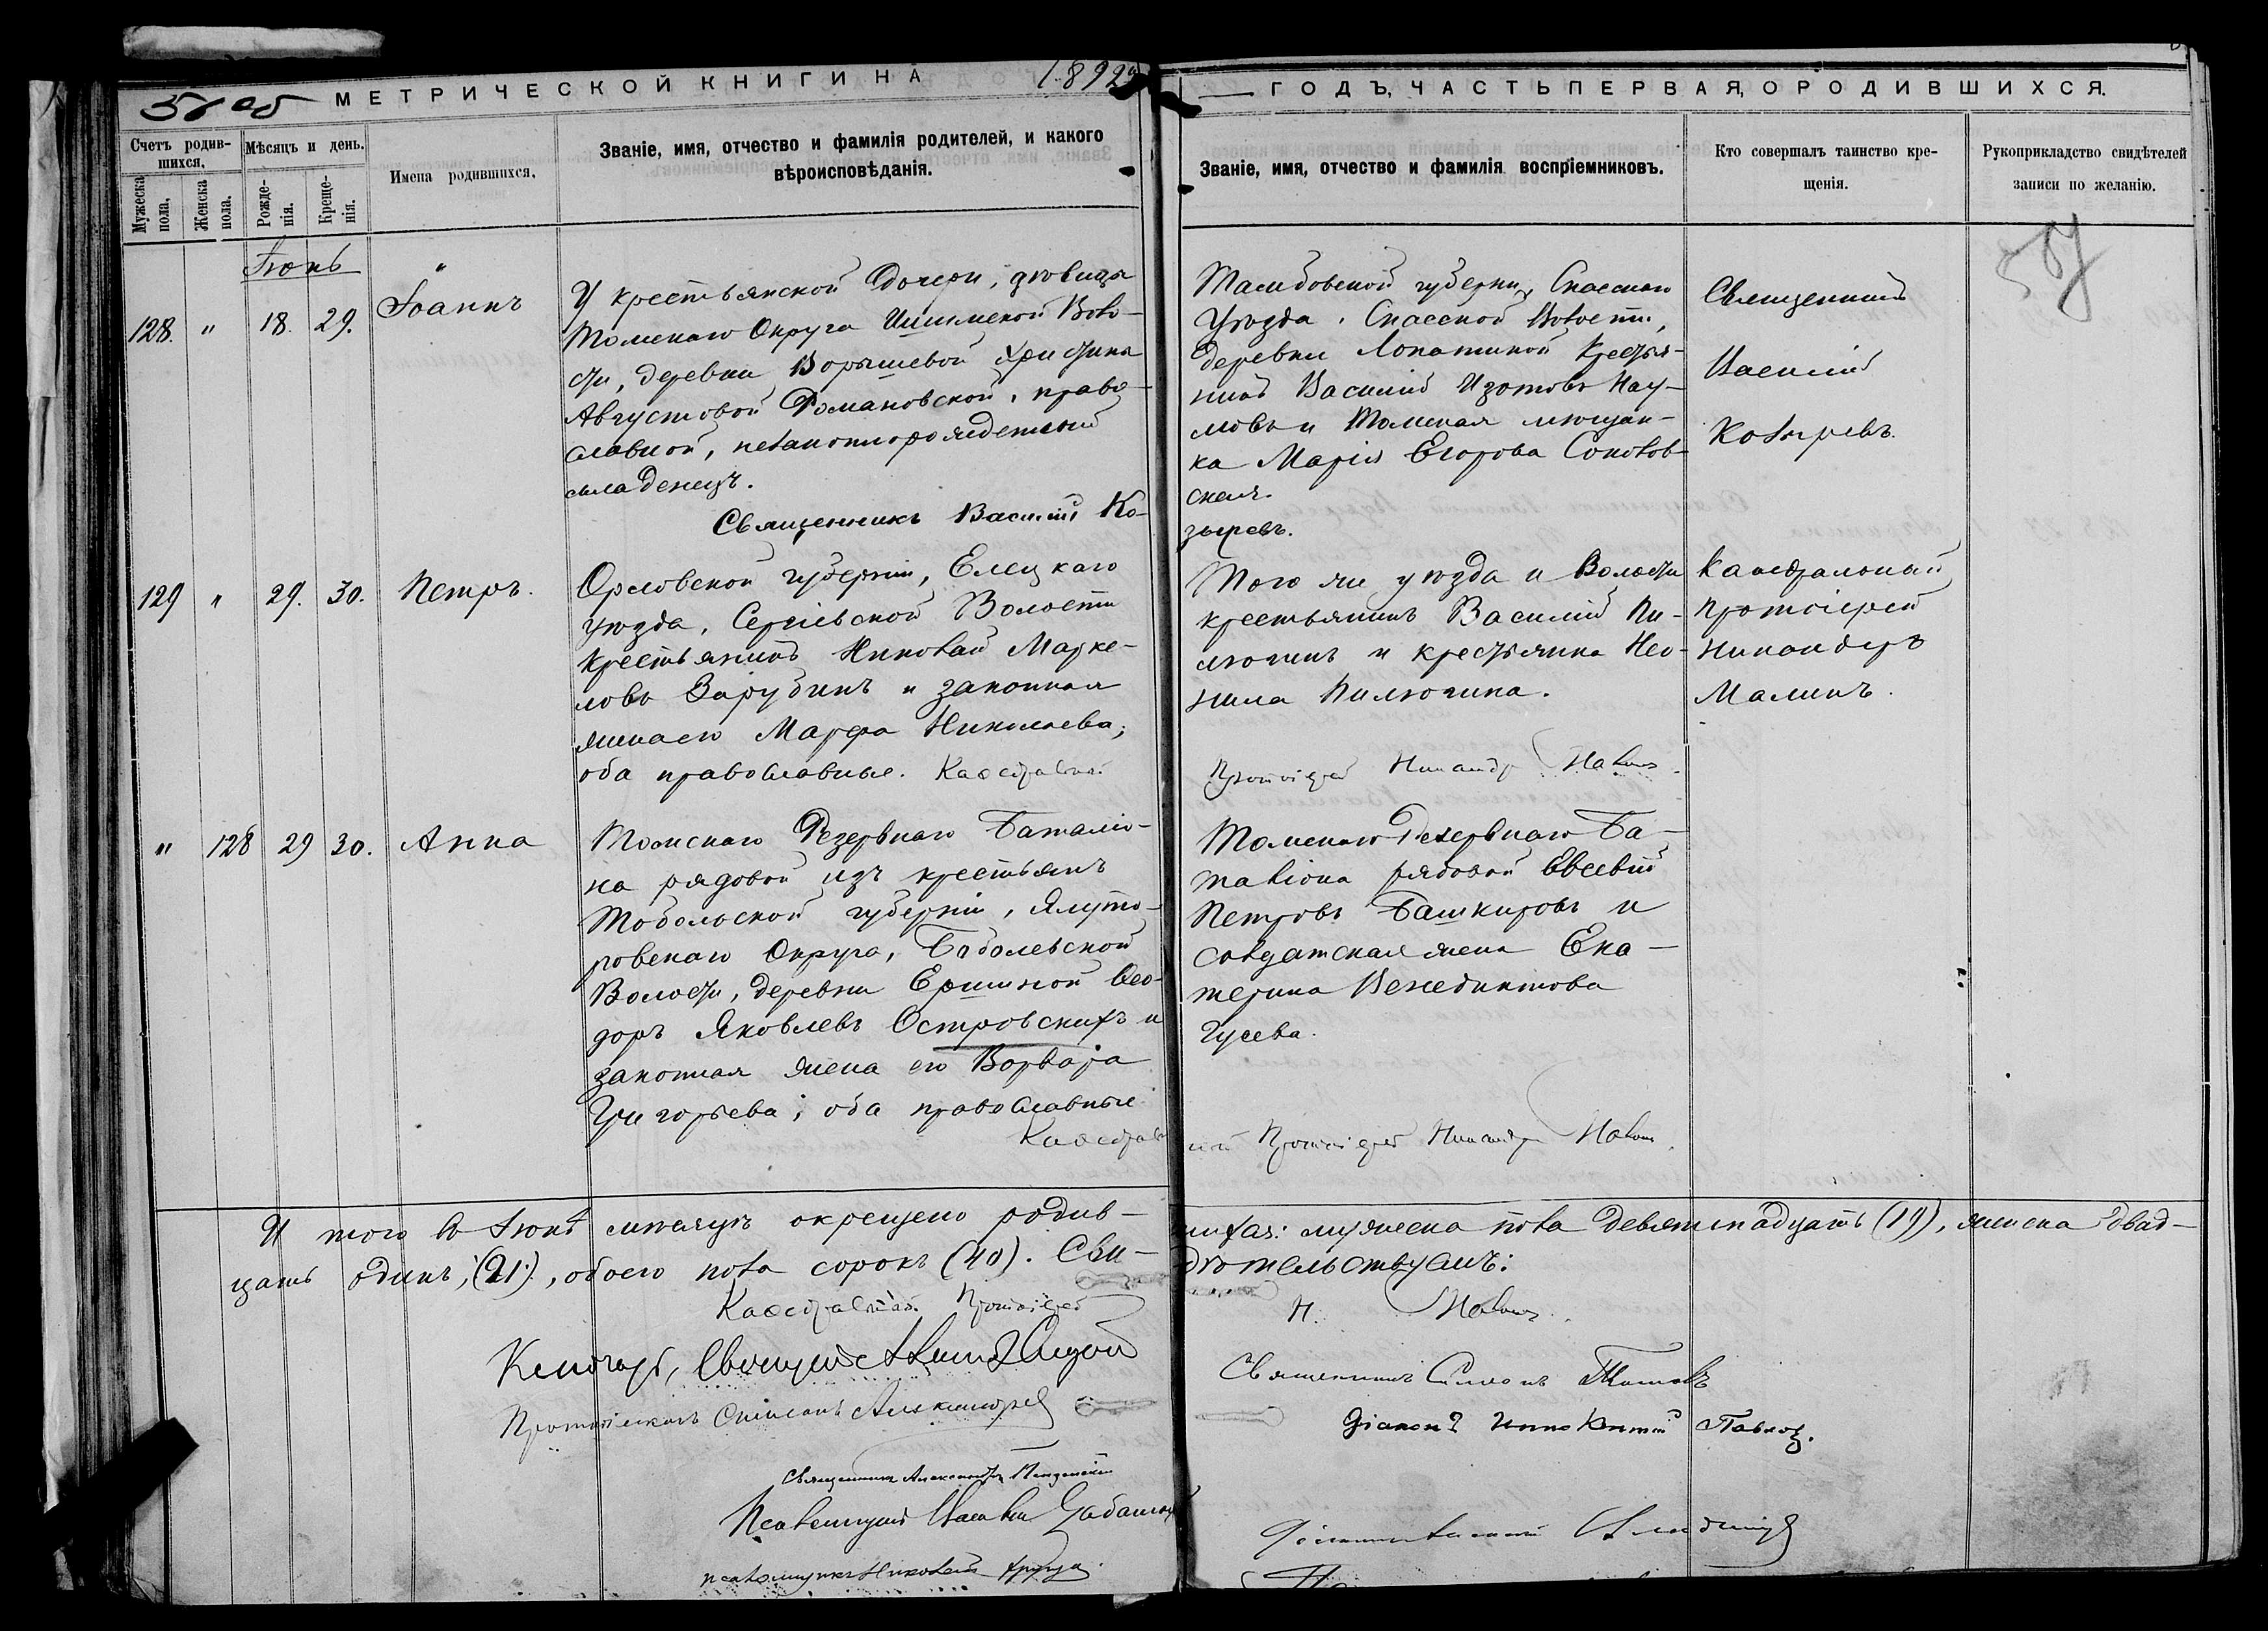 МЕТРИЧЕСКОЙ КНИГИ НА 1892й
ГОДЪ, ЧАСТЬ ПЕРВАЯ, О РОДИВШИХСЯ.
Счетъ родив-
шихся.
Мужеска
пола.
Женска
пола.
Мѣсяцъ и день.
Рожде-
нія.
Креще-
нія.
Имена родившихся.
Званіе, имя, отчество и фамилія родителей, и какого
вѣроисповѣданія.
Званіе, имя, отчество и фамилія воспріемниковъ.
Кто совершалъ таинство кре-
щенія.
Рукоприкладство свидѣтелей
записи по желанію.
Іюнь
128. " 18. 29. Іоаннъ
У крестьянской дочери, дѣвицы
Томскаго Округа Ишимской Воло-
сти, деревни Ворышевой Христины
Августовой Романовской, право-
славной, незаконнорожденный
младенецъ.
Священникъ Василій Ко-
зыревъ.
Тамбовской губерніи, Спасскаго
Уѣзда, Спасской Волости,
деревни Лопатиной Крестья-
нинъ Василій Изотовъ Нау-
мовъ и Томская мѣщан-
ка Марія Егорова Соколов-
ская.
Священникъ
Василій
Козыревъ.
129 " 29. 30. Петръ.
Орловской губерніи, Елецкаго
уѣзда, Сергіевской Волости
Крестьянинъ Николай Марке-
ловъ Зарубинъ и законная
жена его Марфа Николаева;
оба православные. Каѳедральный
Того же уѣзда и Волости
крестьянинъ Василій Пи-
люгинъ и крестьянка Нео-
нила Пилюгина.
Протоіерей Никандръ Малинъ.
Каѳедральный
Протоіерей
Никандръ
Малинъ.
" 128 29 30. Анна
Томскаго Резервнаго Баталіо-
на рядовой изъ крестьянъ
Тобольской губерніи, Ялуто-
ровскаго Округа,
Волости, деревни Ершиной Ѳео-
доръ Яковлевъ Островскихъ и
законная жена его Варвара
Григорьева; оба православные
Каѳедраль
Томскаго Резервнаго Ба-
таліона рядовой Евсевій
Петровъ Башкировъ и
солдатская жена Ека-
терина Венедиктова
Гусева.
ный Протоіерей Никандръ Малинъ.
И того въ Іюнѣ мѣсяцѣ окрещено родив-
шихся: мужеска пола девятнадцать (19), женска двад-
цать одинъ, (21), обоего пола сорокъ (40). Сви-
дѣтельствуемъ:
Каѳедральный Протоіерей
Н. Малинъ.
Ключарь, Священникъ
Священникъ Симеонъ Титовъ
Протодіаконъ
Діаконъ Иннокентій Павлов.
Священникъ Александръ
Псаломщикъ
псаломщикъ Николай